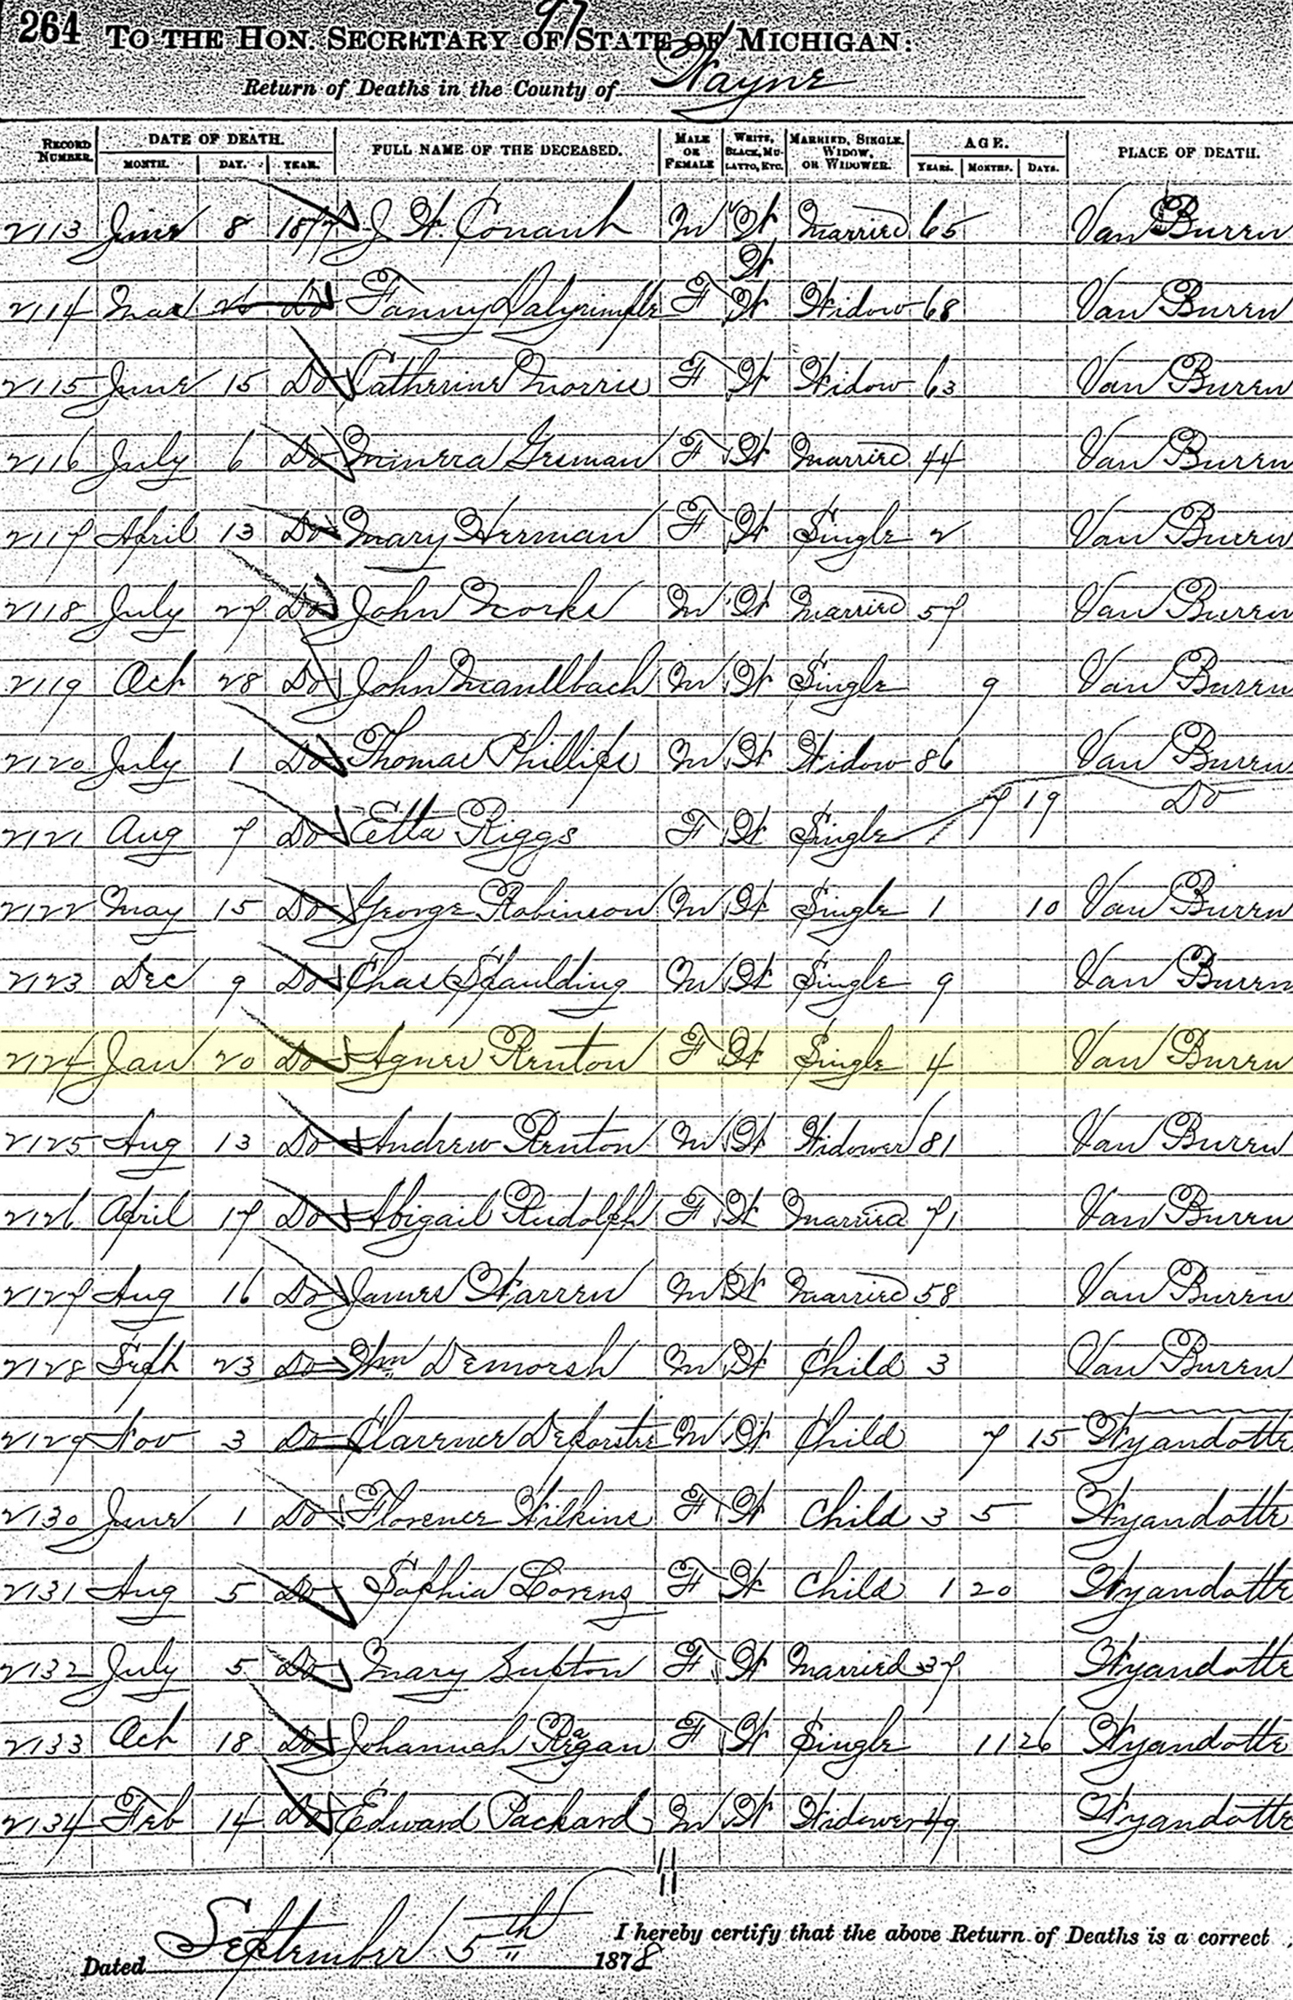 264 97
TO THE HON. SECRETARY OF STATE OF MICHIGAN:
Return of Deaths in the County of Wayne
RECORD NUMBER. DATE OF DEATH. MONTH. DAY. YEAR. FULL NAME OF THE DECEASED. MALE OR FEMALE WHITE, BLACK, MULATTO, ETC. MARRIED, SINGLE, WIDOW, OR WIDOWER. AGE. YEARS. MONTHS. DAYS. PLACE OF DEATH.
2113 June 8 1877 J W. Conant M W Married 65 Van Buren
W
2114 Mar 26 Do Fanny Dalyrimple F W Widow 68 Van Buren
2115 June 15 Do Catherine Morris F W Widow 63 Van Buren
2116 July 6 Do F W Married 44 Van Buren
2117 April 13 Do Mary Herman F W Single 2 Van Buren
2118 July 27 Do John M W Married 57 Van Buren
2119 Oct 28 Do John M W Single 9 Van Buren
2120 July 1 Do Thomas Phillips M W Widow 86 Van Buren
2121 Aug 7 Do Etta Riggs F W Single 7 19 Do
2122 May 15 Do George Robinson M W Single 1 10 Van Buren
2123 Dec 9 Do Chas Spaulding M W Single 9 Van Buren
2124 Jan 20 Do Agnes Renton F W Single 4 Van Buren
2125 Aug 13 Do Andrew Renton M W Widower 81 Van Buren
2126 April 17 Do Abigail Rudolph F W Married 71 Van Buren
2127 Aug 16 Do James Warren M W Married 58 Van Buren
2128 Sept 23 Do Wm Demorsh M W Child 3 Van Buren
2129 Nov 3 Do Clarence M W Child 7 15 Wyandotte
2130 June 1 Do Florence Wilkins F W Child 3 5 Wyandotte
2131 Aug 5 Do Sophia Lorenz F W Child 1 20 Wyandotte
2132 July 5 Do Mary Supton F W Married 37 Wyandotte
2133 Oct 18 Do Johannah Ragan F W Single 11 26 Wyandotte
2134 Feb 14 Do Edward Packard M W Widower 49 Wyandotte
I hereby certify that the above Return of Deaths is a correct
Dated September 5th 1878